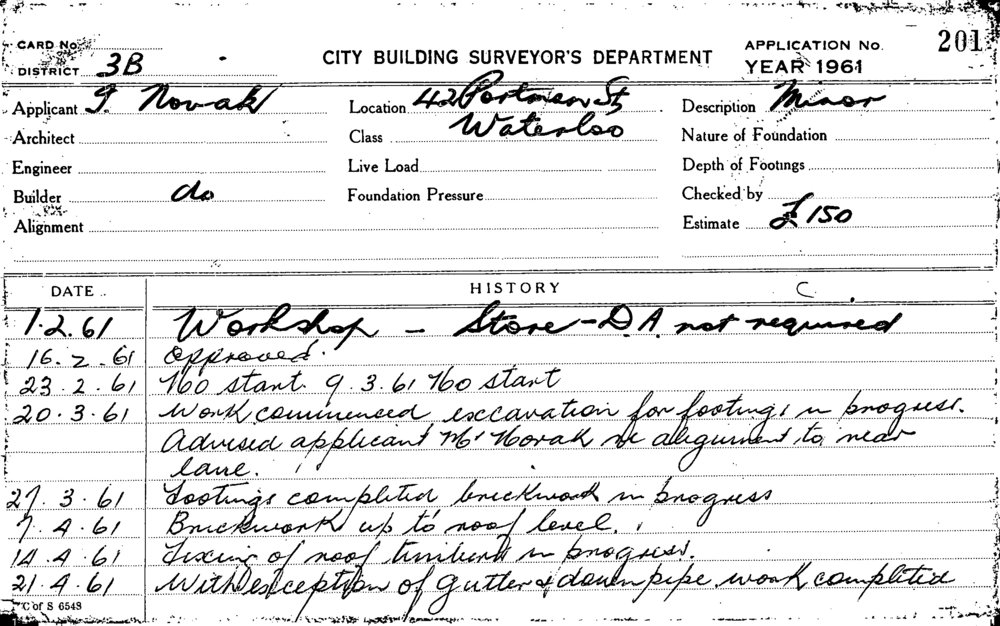 CARD No.
CITY BUILDING SURVEYOR'S DEPARTMENT
APPLICATION No. 201
DISTRICT 3B
YEAR 1961
Applicant J. Novak
Location 42 Portman St,
Description Minor
Architect
Class Waterloo
Nature of Foundation
Engineer
Live Load
Depth of Footings
Builder do
Foundation Pressure
Checked by
Alignment
Estimate £150
DATE
HISTORY
C.
1.2.61 Workshop - Store - D.A. not required
16.2.61 Approved.
23.2.61 No start. 9.3.61 No start
20.3.61 Work commenced excavation for footings in progress.
Advised applicant Mr Novak re alignment to rear
lane.
27.3.61 Footings completed brickwork in progress
7.4.61 Brickwork up to roof level.
14.4.61 Fixing of roof timbers in progress.
21.4.61 With exception of gutter & down pipe work completed
C of S 6543